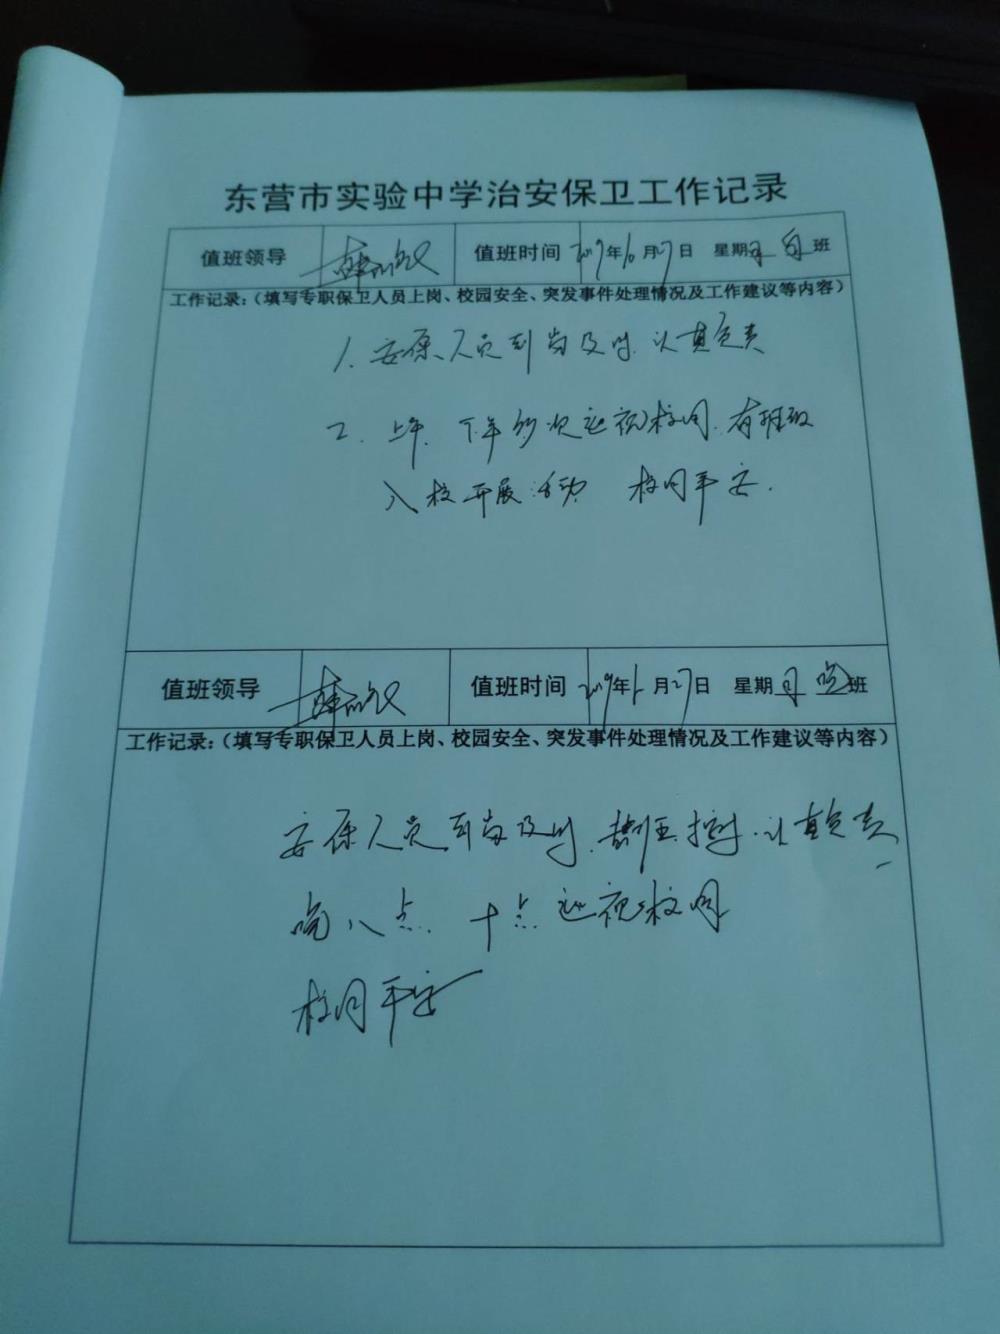 东营市实验中学治安保卫工作记录
值班领导 值班时间 2019年10月27日 星期日 白班
工作记录：（填写专职保卫人员上岗、校园安全、突发事件处理情况及工作建议等内容）
1. 安保人员到岗及时，认真负责
2. 上午、下午多次巡视校园，有班级
入校开展活动 校园平安.
值班领导 值班时间 2019年10月27日 星期日 晚班
工作记录：（填写专职保卫人员上岗、校园安全、突发事件处理情况及工作建议等内容）
安保人员到岗及时，认真负责
晚八点、十点巡视校园
校园平安